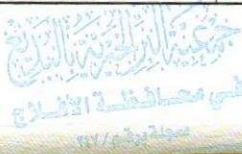 جمعية البر الخيرية بالبديع
في محافظة الأفلاج
مسجلة برقم /